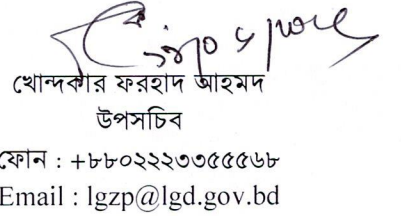 খোন্দকার ফরহাদ আহমদ
উপসচিব
ফোন : +৮৮০২২২৩৩৫৫৫৬৮
Email : lgzp@lgd.gov.bd